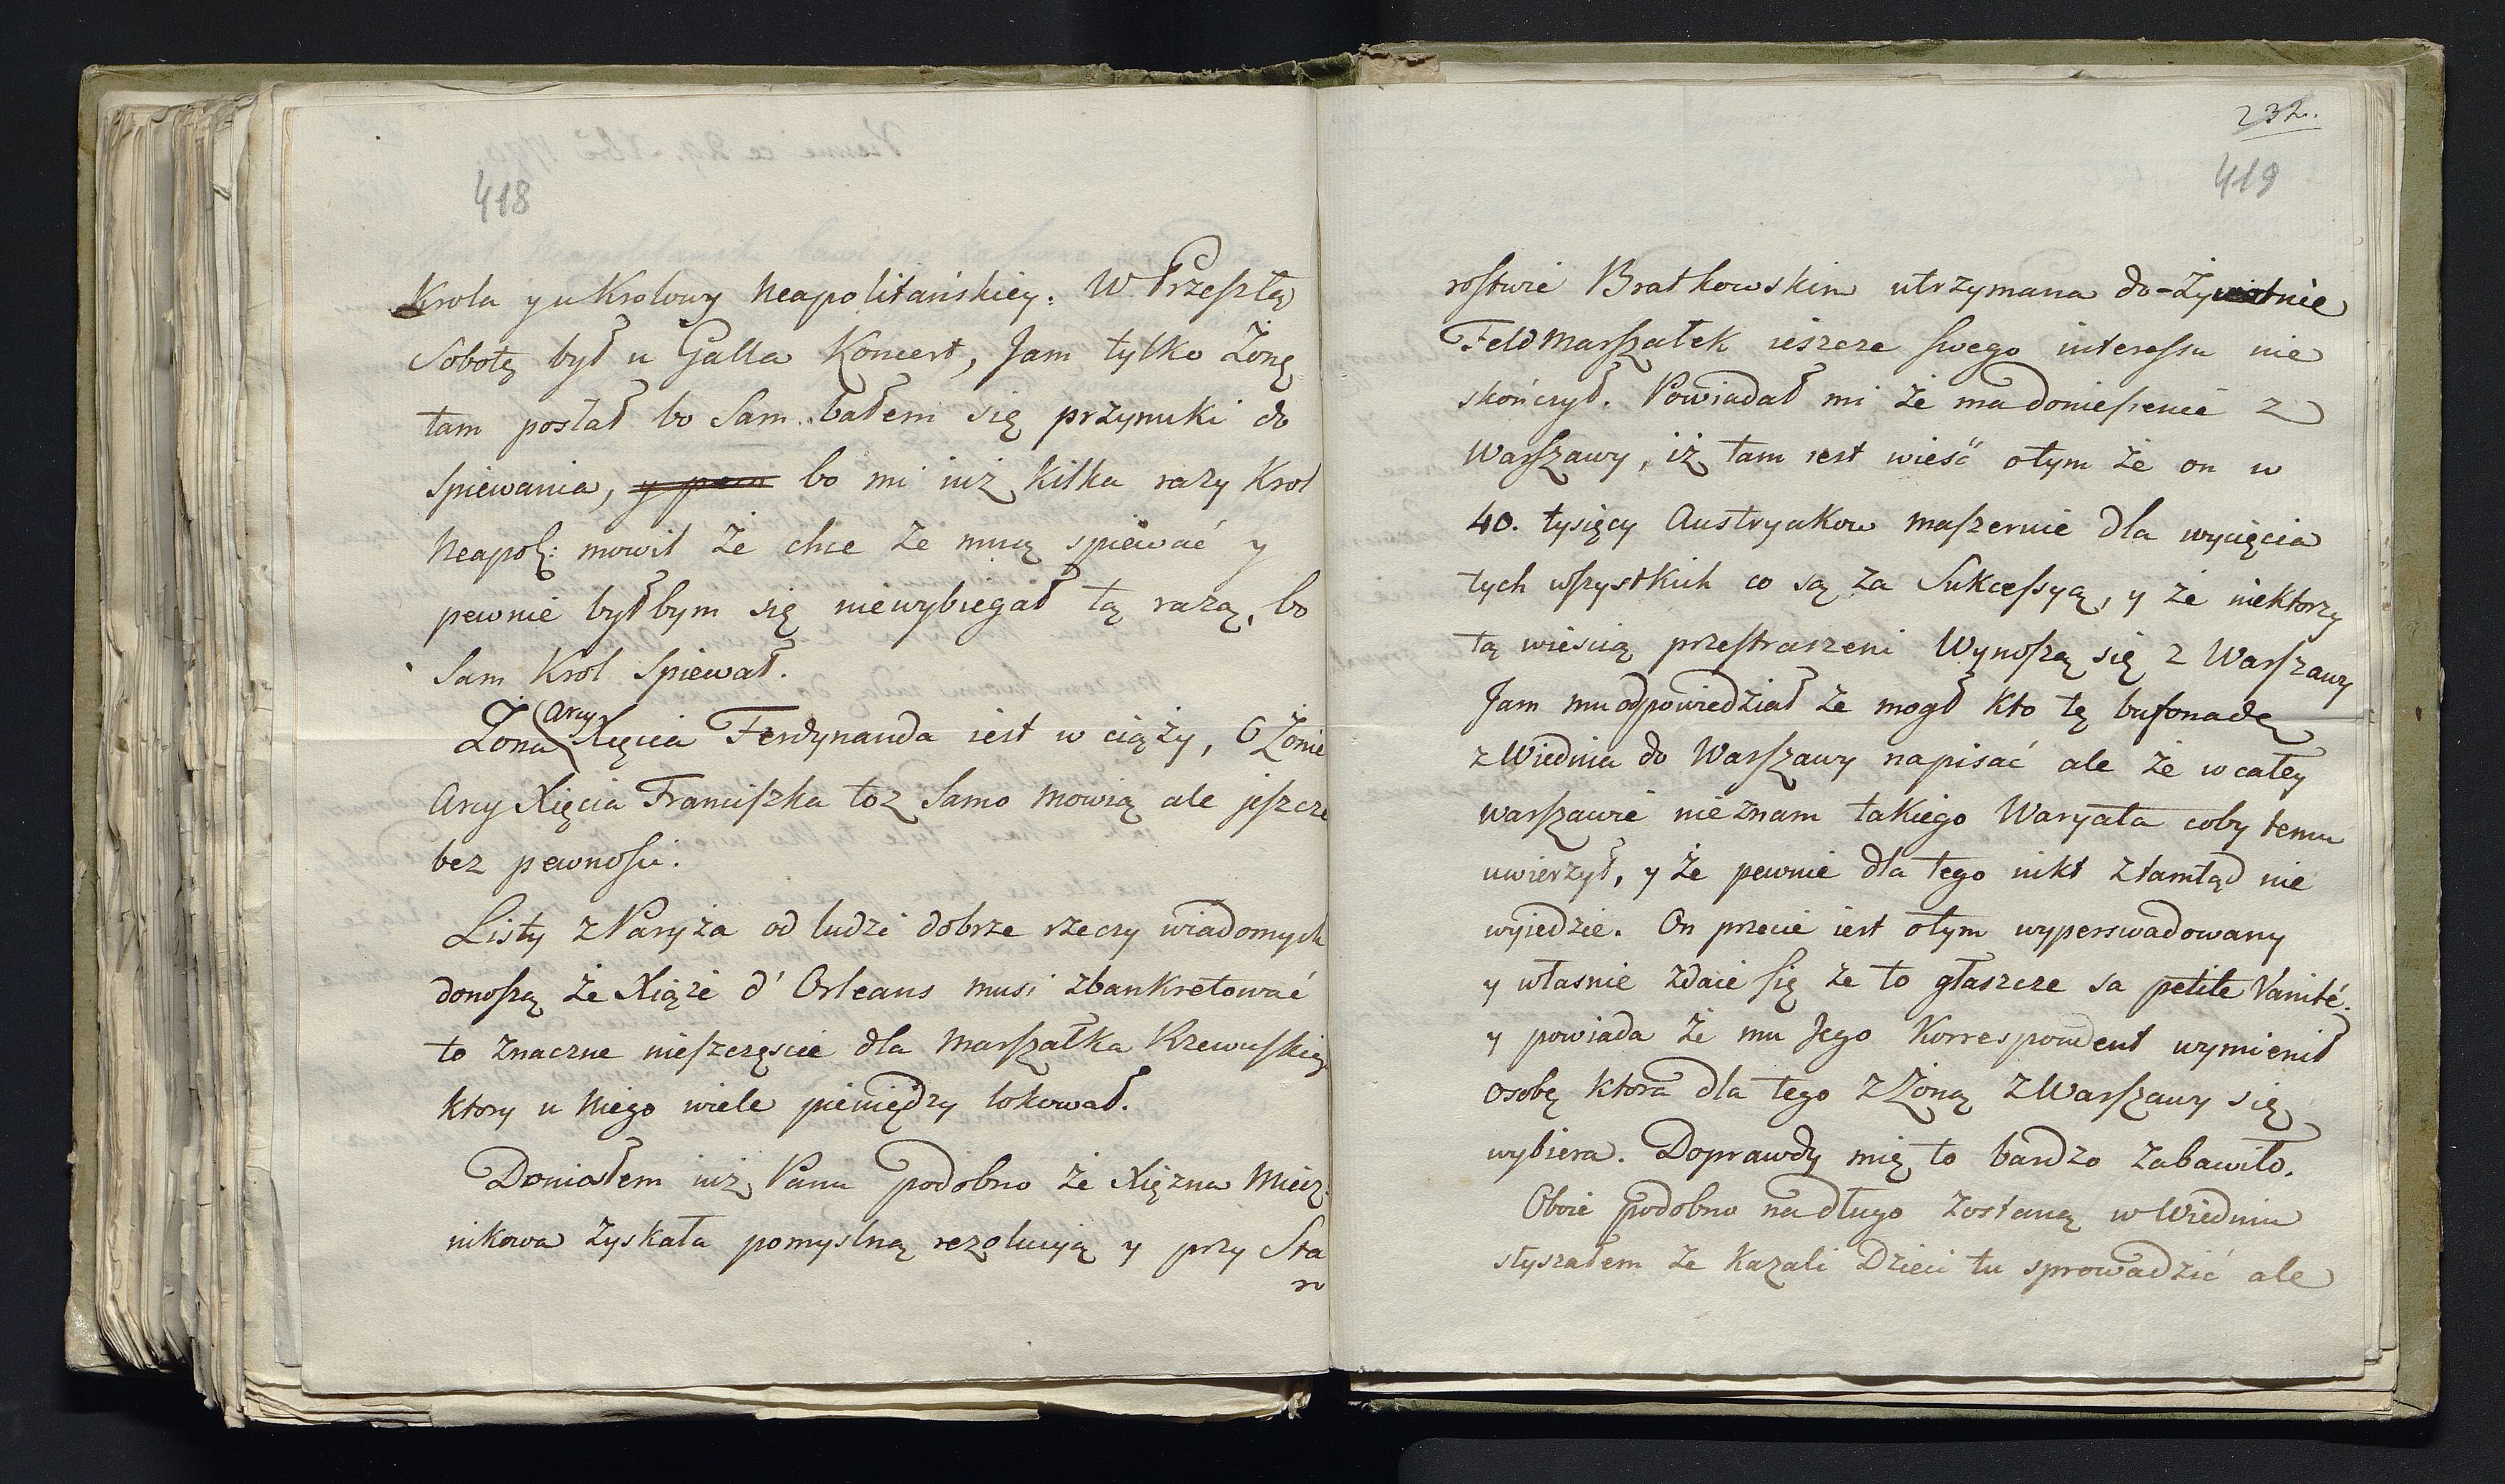 418
Krola y u Krolowy Neapolitańskiey. W Przeszłą
Sobotę był u Galla Koncert, Jam tylko Żonę
tam posłał bo Sam bałem się przynuki do
spiewania, bo mi iuż kilka razy Krol
Neapol: mowił że chce ze mną spiewać y
pewnie byłbym się niewybiegał tą razą, bo
Sam Krol Spiewał.
Żona Arcy Xięcia Ferdynanda iest w ciąży, O Żonie
Arcy Xięcia Franciszka toz Samo mowią ale jeszcze
bez pewnosci.
Listy z Paryża od ludzi dobrze rzeczy wiadomych
donoszą że Xiąże d'Orleans musi zbankretować
to znaczne nieszczęscie dla Marszałka Rzewuskieg
ktory u Niego wiele pieniędzy lokował.
Doniosłem iuż Panu podobno że Xiężna Miecz:
nikowa zyskała pomyslną rezolucyią y przy Sta
ro
232.
419
rostwie Bratkowskim utrzymana do-żywotnie
FeldMarszałek ieszcze swego interessu nie
skończył. Powiadał mi że ma doniesienie z
Warszawy, iż tam iest wieść otym że on w
40. tysięcy Austryakow maszeruie dla wycięcia
tych wszystkich co są za Sukcessyą, y że niektorzy
tą wiescią przestraszeni Wynoszą się z Warszawy
Jam mu odpowiedział że mogł kto tę bufonadę
z Wiednia do Warszawy napisać ale że w całey
Warszawie nieznam takiego Waryata coby temu
uwierzył, y że pewnie dla tego nikt ztamtąd nie
wyiedzie. On przecie iest otym wyperswadowany
y własnie zdaie się że to głaszcze sa petite Vanité.
y powiada że mu Jego Korrespondent wymienił
osobę ktora dla tego z Żoną z Warszawy się
wybiera. Doprawdy mię to bardzo zabawiło.
Oboie podobno nadługo zostaną w Wiedniu
słyszałem że kazali Dzieci tu sprowadzić ale